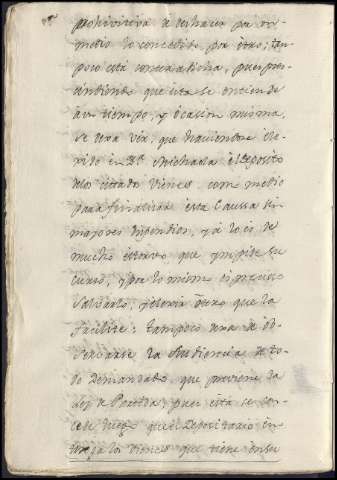 prohiviria à deshacer pr un
medio lo concedido por otro; tam
poco està contraditoria, pues pre-
endiendo que esta se entiende
à un tiempo, y ôcasion misma,
se dexa ver, que haviendose ele-
xido en Dn Michaela el Deposito
delos citados vienes, como medio
para finalizar esta Caussa sin
maiores dispendios, y à lo es de
mucho estorvo que ympide su
curso, y por lo mismo es preciso
Salvarlo, y elexir otro que la
facilite: tampoco dexa de ob-
servarse la Audiencia de to-
do Demandado, que previene la
Ley de Partida, pues esta se con-
cede luego que el Depositario en-
trega los vienes que tiene en su